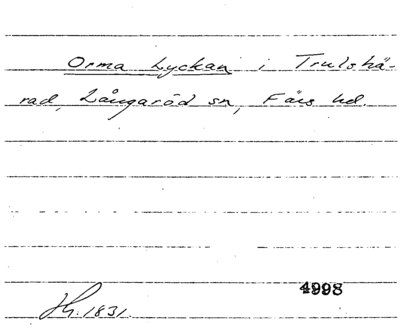 Orma Lyckan i Trulshä-
rad, Långaröd sn, Färs hd.
4998
Hg. 1831.